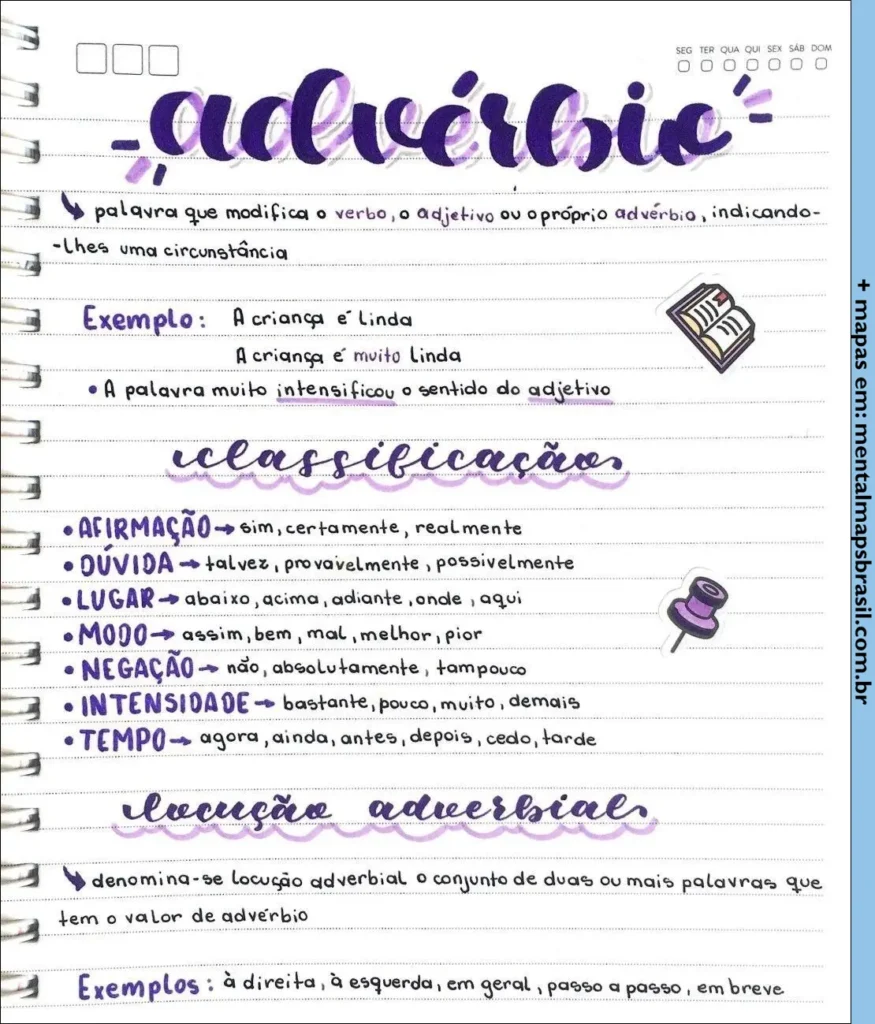 SEG TER QUA QUI SEX SÁB DOM
advérbio
palavra que modifica o verbo, o adjetivo ou o próprio advérbio, indicando-
-lhes uma circunstância
Exemplo: A criança é linda
A criança é muito linda
• A palavra muito intensificou o sentido do adjetivo
classificação
• AFIRMAÇÃO → sim, certamente, realmente
• DÚVIDA → talvez, provavelmente, possivelmente
• LUGAR → abaixo, acima, adiante, onde, aqui
• MODO → assim, bem, mal, melhor, pior
• NEGAÇÃO → não, absolutamente, tampouco
• INTENSIDADE → bastante, pouco, muito, demais
• TEMPO → agora, ainda, antes, depois, cedo, tarde
locução adverbial
denomina-se locução adverbial o conjunto de duas ou mais palavras que
tem o valor de advérbio
Exemplos: à direita, à esquerda, em geral, passo a passo, em breve
+ mapas em: mentalmapsbrasil.com.br